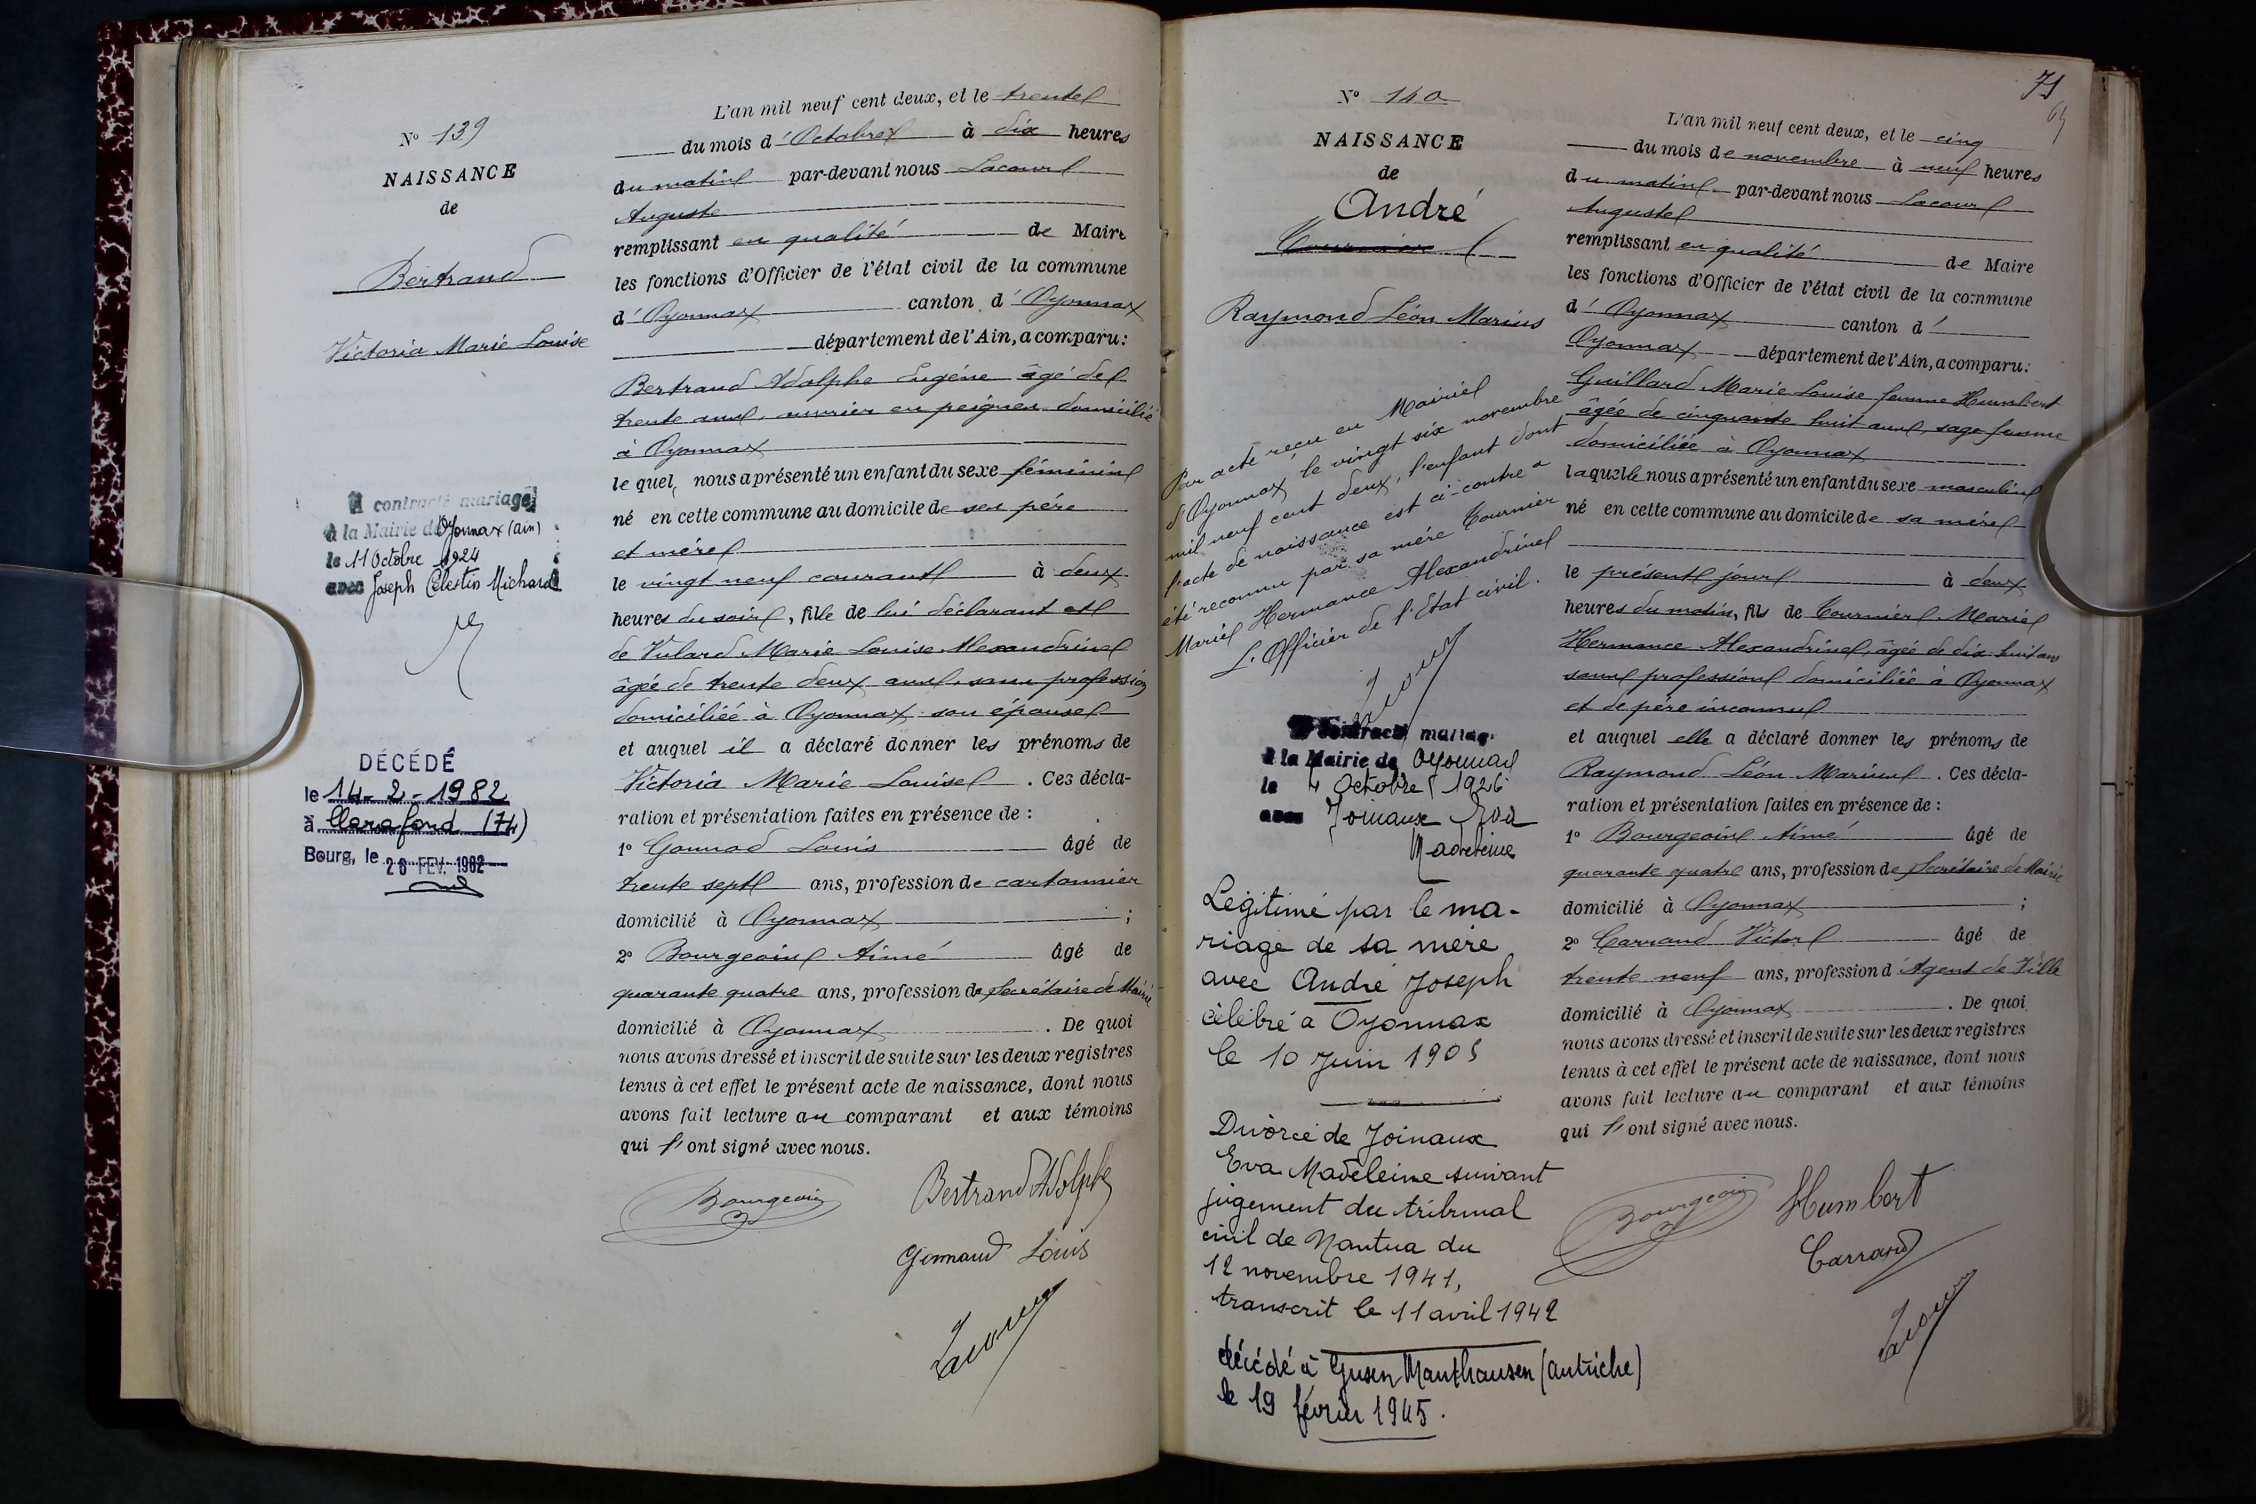 N° 139
NAISSANCE
de
Bertrand
Victoria Marie Louise
A contracté mariage
à la Mairie d Oyonnax (Ain)
le 11 Octobre 1924
avec Joseph Célestin Michard
DÉCÉDÉ
le 14-2-1982
à (74)
Bourg, le 26 FEV. 1982
L'an mil neuf cent deux, et le trente
du mois d'Octobre à dix heures
du matin par-devant nous Lacour
Auguste
remplissant en qualité de Maire
les fonctions d'Officier de l'état civil de la commune
d'Oyonnax canton d'Oyonnax
département de l'Ain, a comparu:
Bertrand Adolphe Eugène âgé de
trente ans, ouvrier en peignes domicilié
à Oyonnax
le quel, nous a présenté un enfant du sexe féminin
né en cette commune au domicile de ses père
et mère
le vingt neuf courant à deux
heures du soir, fille de lui déclarant et
de Vulard Marie Louise Alexandrine
âgée de trente deux ans, sans profession
domiciliée à Oyonnax son épouse
et auquel il a déclaré donner les prénoms de
Victoria Marie Louise. Ces décla-
ration et présentation faites en présence de :
1° Gonnod Louis âgé de
trente sept ans, profession de cartonnier
domicilié à Oyonnax ;
2° Bourgeois Aimé âgé de
quarante quatre ans, profession de Secrétaire de Mairie
domicilié à Oyonnax. De quoi
nous avons dressé et inscrit de suite sur les deux registres
tenus à cet effet le présent acte de naissance, dont nous
avons fait lecture au comparant et aux témoins
qui l'ont signé avec nous.
Bourgeois
Bertrand Adolphe
Gonnaud Louis
Lacour
71
N° 140
NAISSANCE
de
André
Tournier
Raymond Léon Marius
Par acte reçu en Mairie
d'Oyonnax, le vingt six novembre
mil neuf cent deux, l'enfant dont
l'acte de naissance est ci-contre a
été reconnu par sa mère Tournier
Marie Hermance Alexandrine
L'Officier de l'Etat civil.
Lacour
A contracté mariage
à la Mairie de Oyonnax
le 4 Octobre 1926
avec Joinaux Eva
Madeleine
Légitimé par le ma-
riage de sa mère
avec André Joseph
célébré à Oyonnax
le 10 Juin 1905
Divorcé de Joinaux
Eva Madeleine suivant
jugement du tribunal
civil de Nantua du
12 novembre 1941,
transcrit le 11 avril 1942
décédé à Gusen Mauthausen (Autriche)
le 19 février 1945.
L'an mil neuf cent deux, et le cinq
du mois de novembre à neuf heures
du matin par-devant nous Lacour
Auguste
remplissant en qualité de Maire
les fonctions d'Officier de l'état civil de la commune
d'Oyonnax canton d'
Oyonnax département de l'Ain, a comparu:
Guillard Marie Louise femme Humbert
âgée de cinquante huit ans, sage femme
domiciliée à Oyonnax
laquelle nous a présenté un enfant du sexe masculin
né en cette commune au domicile de sa mère
le présent jour à deux
heures du matin, fils de Tournier Marie
Hermance Alexandrine, âgée de dix huit ans
sans profession domiciliée à Oyonnax
et de père inconnu
et auquel elle a déclaré donner les prénoms de
Raymond Léon Marius. Ces décla-
ration et présentation faites en présence de :
1° Bourgeois Aimé âgé de
quarante quatre ans, profession de Secrétaire de Mairie
domicilié à Oyonnax ;
2° Carrand Victor âgé de
trente neuf ans, profession d'Agent de Ville
domicilié à Oyonnax. De quoi
nous avons dressé et inscrit de suite sur les deux registres
tenus à cet effet le présent acte de naissance, dont nous
avons fait lecture au comparant et aux témoins
qui l'ont signé avec nous.
Bourgeois
Humbert
Carrand
Lacour